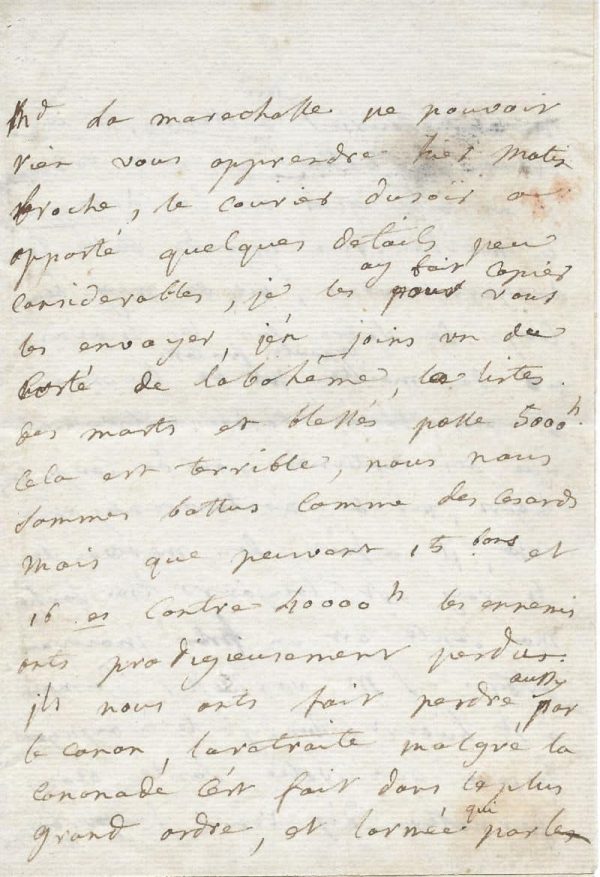 Md La marechalle ne pouvoir
rien vous apprendre hier matin
broche, le courier du soir a
apporté quelques détails peu
considerables, je les ay fait copier pour vous
les envoyer, j'en joins un du
corté de la bohéme, la listes
des morts et blessés passe 5000 h.
cela est terrible, nous nous
sommes battus comme des cesards
mais que peuvent 15 bons et
16 es contre 40000 h les ennemis
onts prodigieusement perdus.
ils nous onts fait perdre aussy par
le canon, la retraite malgré la
cannonade c'est fait dans le plus
grand ordre, et l'armée qui par les